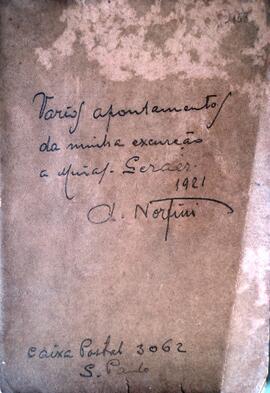 Varios apontamentos
da minha excursão
a Minas-Geraes.
1921
A. Norfini
Caixa Postal 3062
S. Paulo